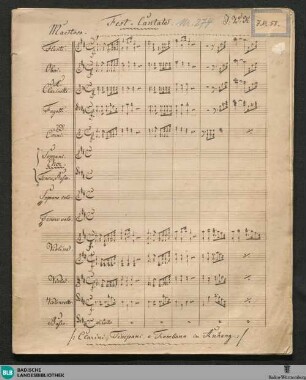 Fest-Cantate.
No. 278
Maestoso.
Flauti
Oboi
Clarinetti
Fagotti
Corni
Soprani
Tenori, Bassi
Soprano solo
Tenore solo
Violini
Viola
Violoncello
Basso
Clarini, Timpani e Tromboni im Anhang.
BLB
BADISCHE
LANDESBIBLIOTHEK
Baden-Württemberg